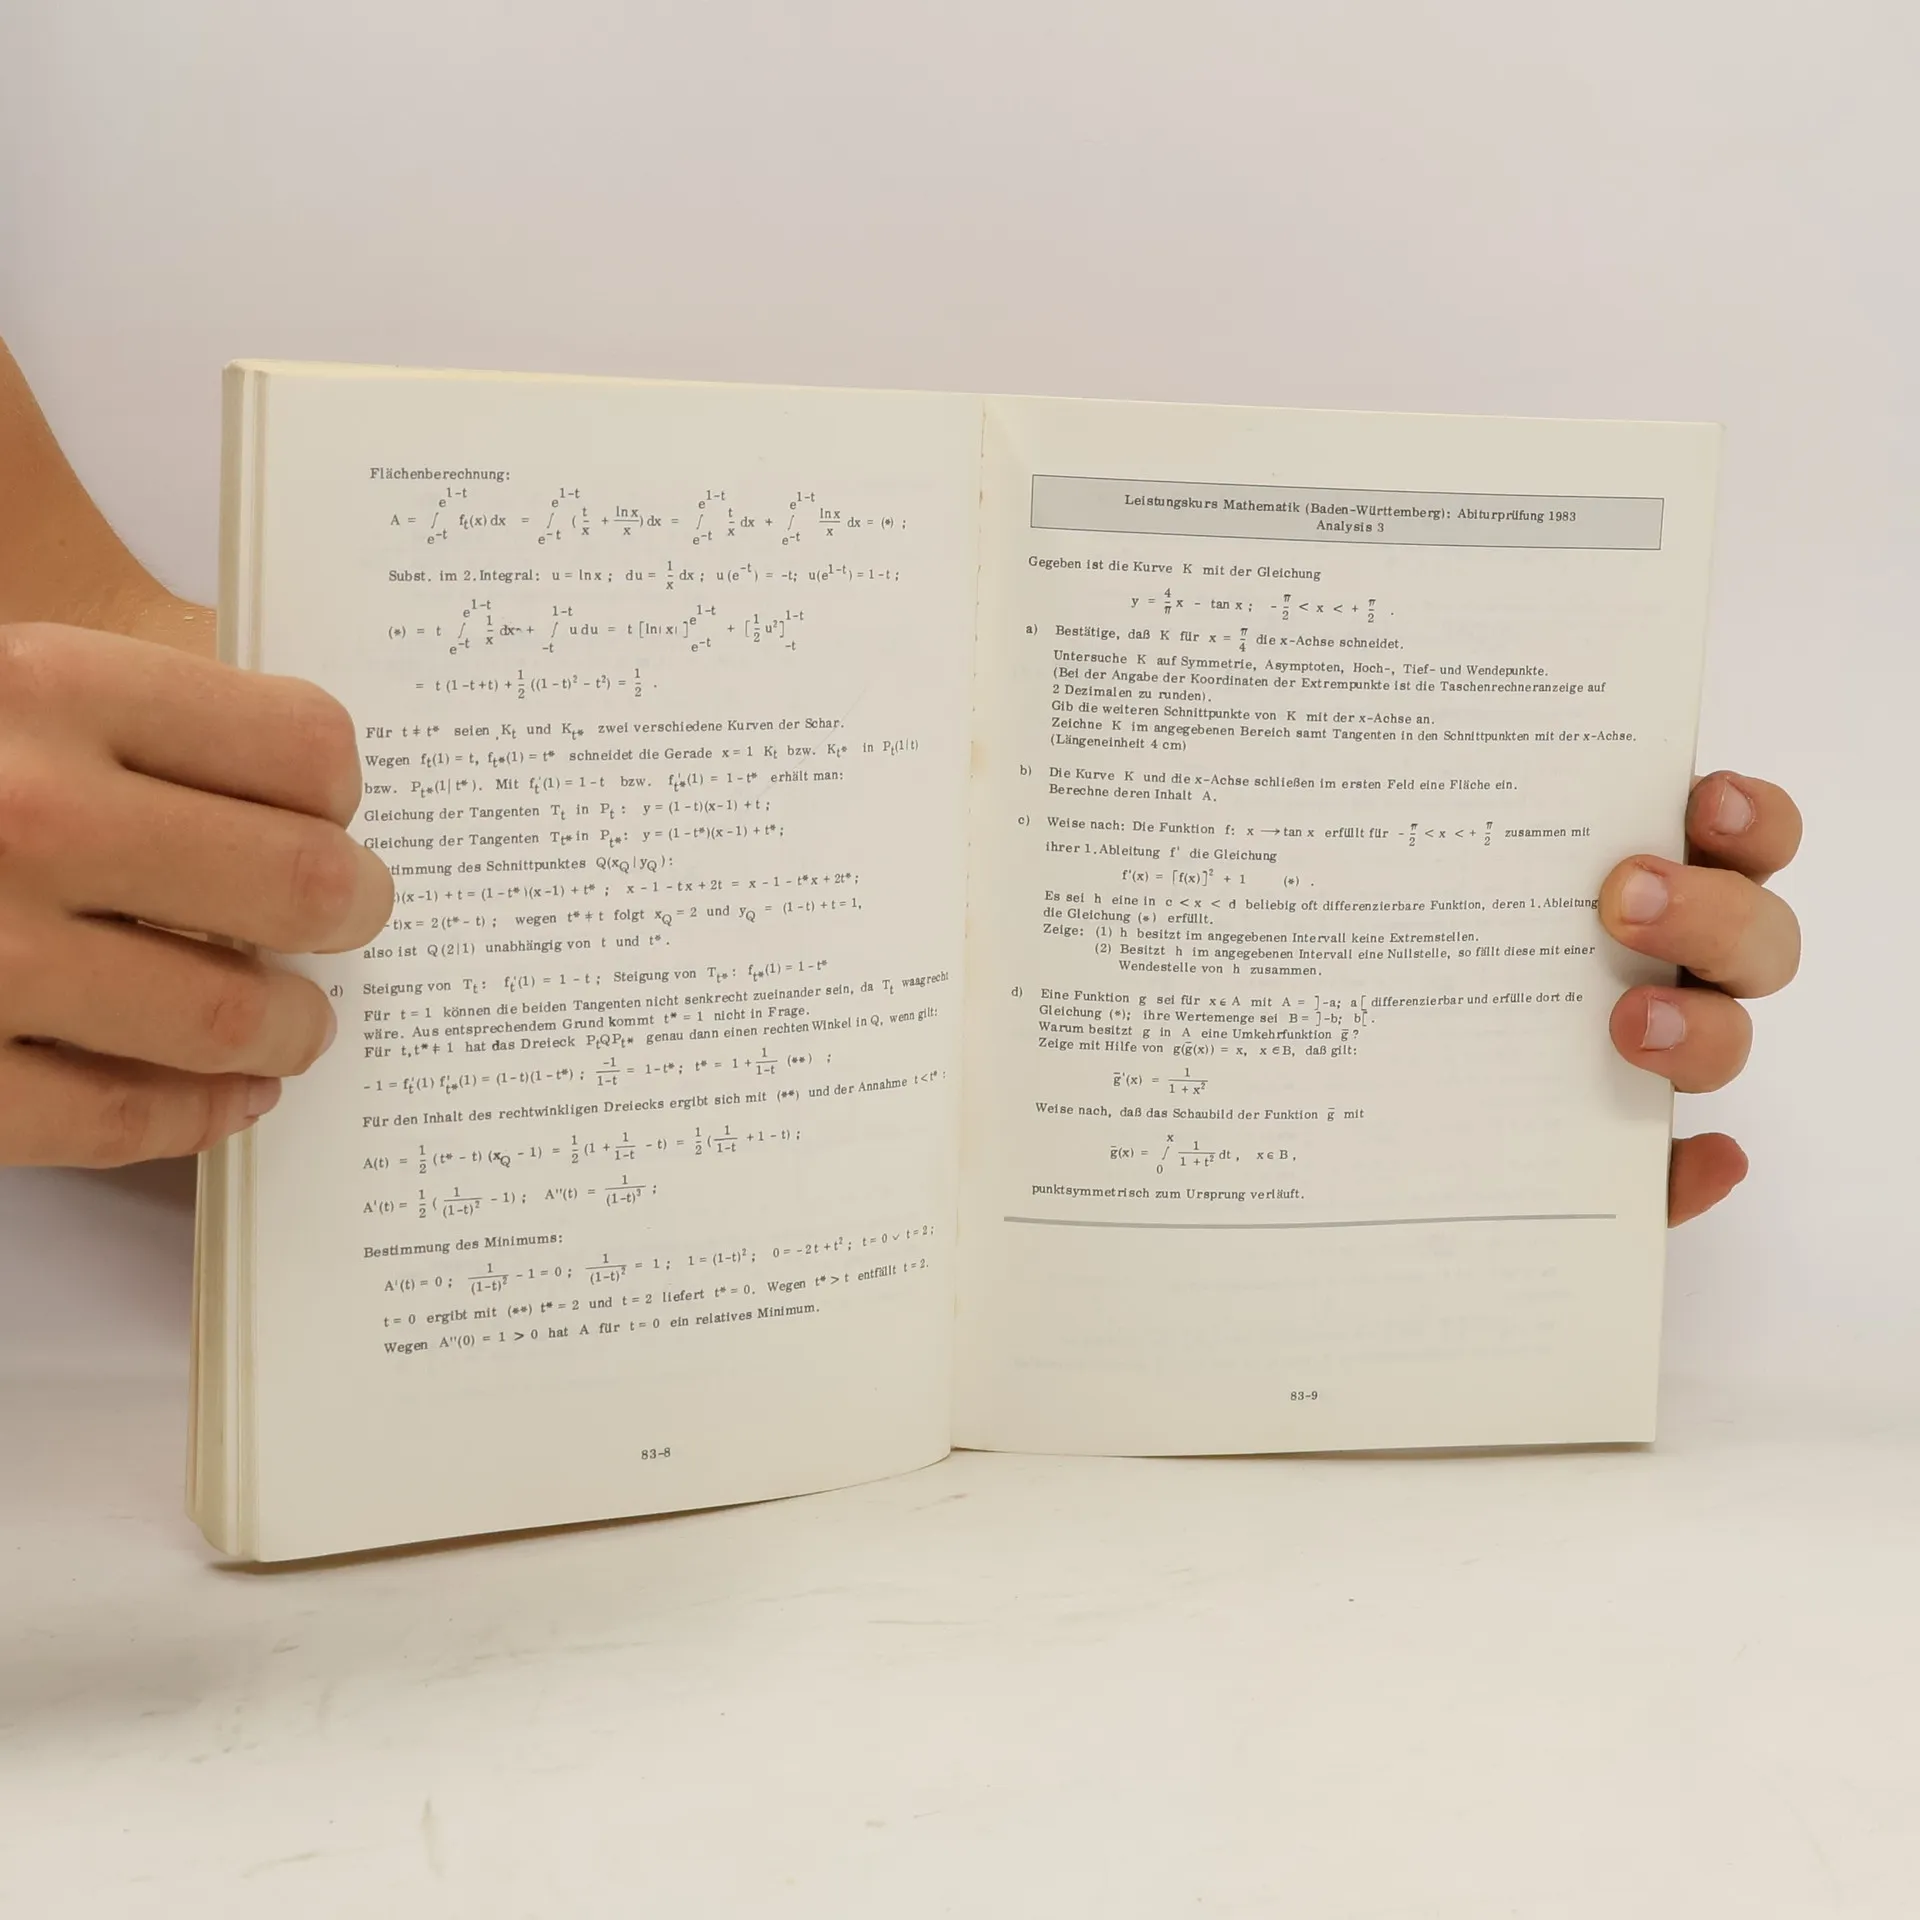 Flächenberechnung:
A = ∫_{e^{-t}}^{e^{1-t}} f_t(x) dx = ∫_{e^{-t}}^{e^{1-t}} (t/x + ln x/x) dx = ∫_{e^{-t}}^{e^{1-t}} t/x dx + ∫_{e^{-t}}^{e^{1-t}} ln x/x dx = (*) ;
Subst. im 2. Integral: u = ln x ; du = 1/x dx ; u(e^{-t}) = -t; u(e^{1-t}) = 1-t ;
(*) = t ∫_{e^{-t}}^{e^{1-t}} 1/x dx + ∫_{-t}^{1-t} u du = t [ln|x|]_{e^{-t}}^{e^{1-t}} + [1/2 u²]_{-t}^{1-t}
= t (1-t+t) + 1/2 ((1-t)² - t²) = 1/2 .
Für t ≠ t* seien K_t und K_{t*} zwei verschiedene Kurven der Schar.
Wegen f_t(1) = t, f_{t*}(1) = t* schneidet die Gerade x = 1 K_t bzw. K_{t*} in P_t(1|t)
bzw. P_{t*}(1|t*). Mit f_t'(1) = 1-t bzw. f_{t*}'(1) = 1-t* erhält man:
Gleichung der Tangenten T_t in P_t : y = (1-t)(x-1) + t ;
Gleichung der Tangenten T_{t*} in P_{t*}: y = (1-t*)(x-1) + t* ;
timmung des Schnittpunktes Q(x_Q|y_Q) :
)(x-1) + t = (1-t*)(x-1) + t* ; x - 1 - tx + 2t = x - 1 - t*x + 2t* ;
-t)x = 2(t*-t) ; wegen t* ≠ t folgt x_Q = 2 und y_Q = (1-t) + t = 1,
also ist Q(2|1) unabhängig von t und t*.
d) Steigung von T_t : f_t'(1) = 1-t ; Steigung von T_{t*} : f_{t*}(1) = 1-t*
Für t = 1 können die beiden Tangenten nicht senkrecht zueinander sein, da T_t waagrecht
wäre. Aus entsprechendem Grund kommt t* = 1 nicht in Frage.
Für t,t* ≠ 1 hat das Dreieck P_tQP_{t*} genau dann einen rechten Winkel in Q, wenn gilt:
-1 = f_t'(1) f_{t*}'(1) = (1-t)(1-t*) ; -1/(1-t) = 1-t* ; t* = 1 + 1/(1-t) (**) ;
Für den Inhalt des rechtwinkligen Dreiecks ergibt sich mit (**) und der Annahme t<t* :
A(t) = 1/2 (t* - t) (x_Q - 1) = 1/2 (1 + 1/(1-t) - t) = 1/2 (1/(1-t) + 1 - t) ;
A'(t) = 1/2 (1/(1-t)² - 1) ; A''(t) = 1/(1-t)³ ;
Bestimmung des Minimums:
A'(t) = 0 ; 1/(1-t)² - 1 = 0 ; 1/(1-t)² = 1 ; 1 = (1-t)² ; 0 = -2t + t² ; t = 0 ∨ t = 2 ;
t = 0 ergibt mit (**) t* = 2 und t = 2 liefert t* = 0. Wegen t* > t entfällt t = 2.
Wegen A''(0) = 1 > 0 hat A für t = 0 ein relatives Minimum.
83-8
Leistungskurs Mathematik (Baden-Württemberg): Abiturprüfung 1983
Analysis 3
Gegeben ist die Kurve K mit der Gleichung
y = 4/π x - tan x ; -π/2 < x < + π/2 .
a) Bestätige, daß K für x = π/4 die x-Achse schneidet.
Untersuche K auf Symmetrie, Asymptoten, Hoch-, Tief- und Wendepunkte.
(Bei der Angabe der Koordinaten der Extrempunkte ist die Taschenrechneranzeige auf
2 Dezimalen zu runden).
Gib die weiteren Schnittpunkte von K mit der x-Achse an.
Zeichne K im angegebenen Bereich samt Tangenten in den Schnittpunkten mit der x-Achse.
(Längeneinheit 4 cm)
b) Die Kurve K und die x-Achse schließen im ersten Feld eine Fläche ein.
Berechne deren Inhalt A.
c) Weise nach: Die Funktion f: x → tan x erfüllt für -π/2 < x < + π/2 zusammen mit
ihrer 1. Ableitung f' die Gleichung
f'(x) = [f(x)]² + 1 (*) .
Es sei h eine in c < x < d beliebig oft differenzierbare Funktion, deren 1. Ableitung
die Gleichung (*) erfüllt.
Zeige: (1) h besitzt im angegebenen Intervall keine Extremstellen.
(2) Besitzt h im angegebenen Intervall eine Nullstelle, so fällt diese mit einer
Wendestelle von h zusammen.
d) Eine Funktion g sei für x ∈ A mit A = ]-a; a[ differenzierbar und erfülle dort die
Gleichung (*); ihre Wertemenge sei B = ]-b; b[ .
Warum besitzt g in A eine Umkehrfunktion ḡ ?
Zeige mit Hilfe von g(ḡ(x)) = x, x ∈ B, daß gilt:
ḡ'(x) = 1/(1 + x²)
Weise nach, daß das Schaubild der Funktion ḡ mit
ḡ(x) = ∫_0^x 1/(1 + t²) dt , x ∈ B ,
punktsymmetrisch zum Ursprung verläuft.
83-9